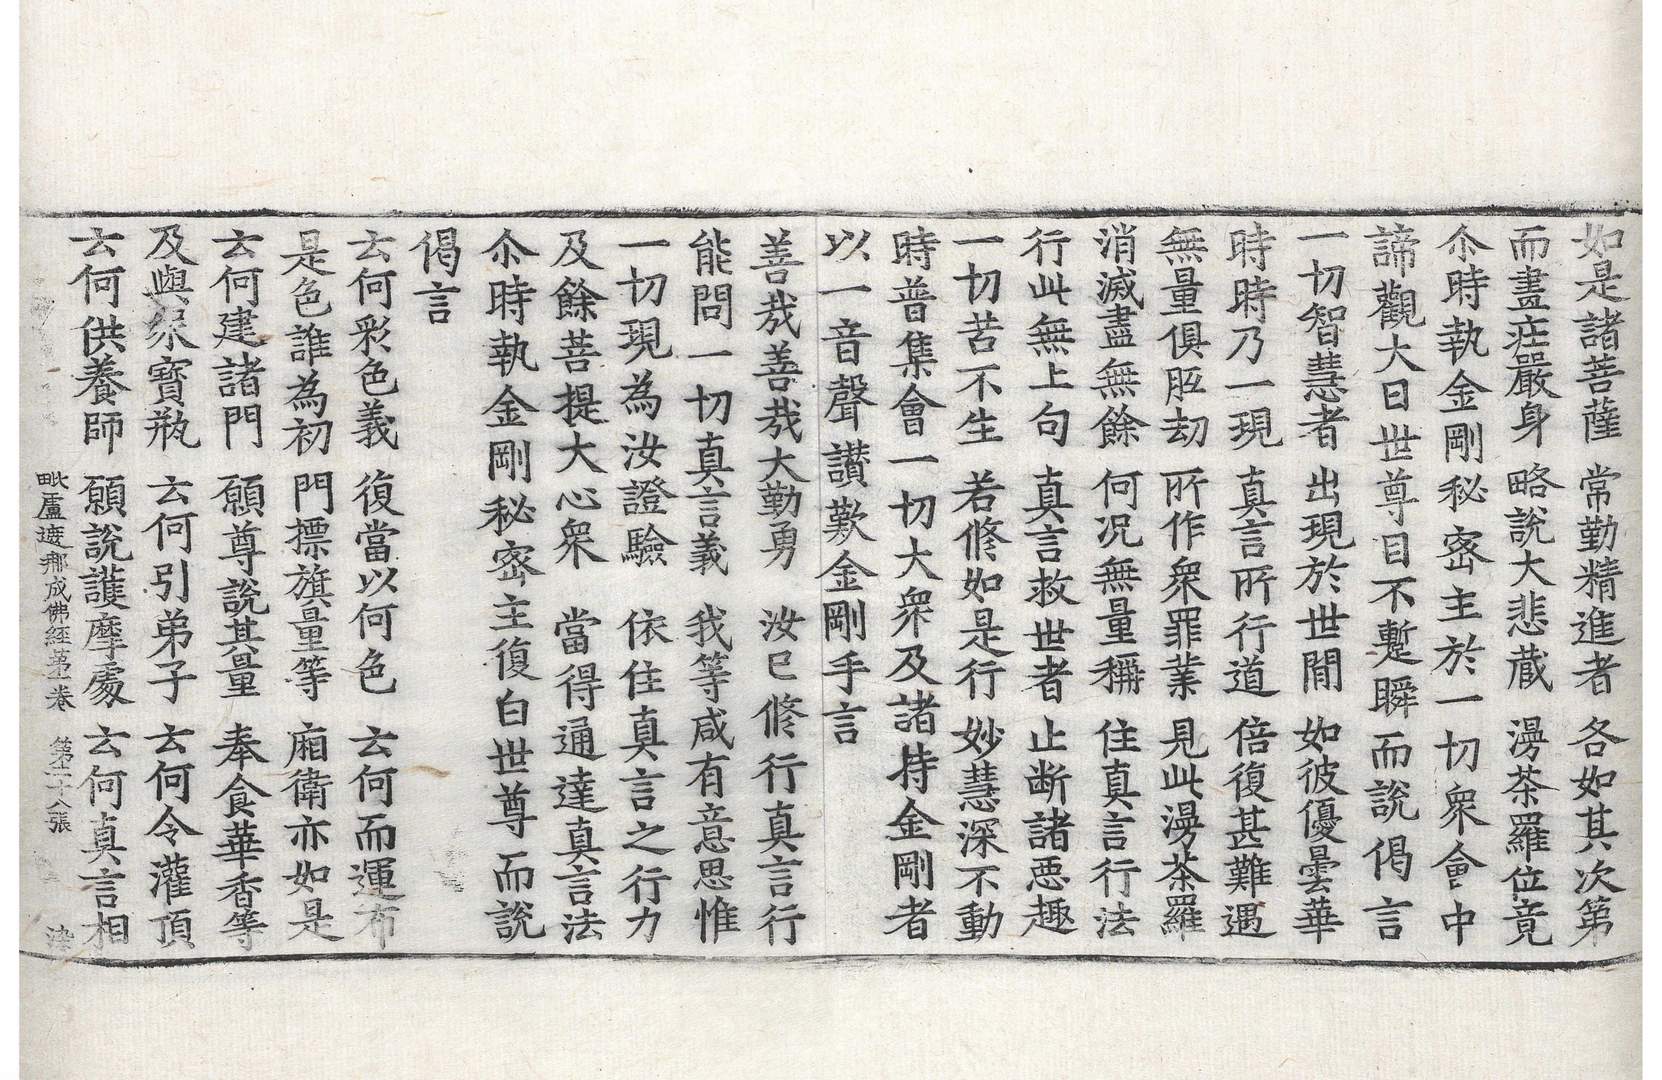 如是諸菩薩 常勤精進者 各如其次第
而盡庄嚴身 略說大悲藏 漫荼羅位竟
尒時執金剛秘密主於一切衆會中
諦觀大日世尊目不蹔瞬而說偈言
一切智慧者 出現於世閒 如彼優曇華
時時乃一現 真言所行道 倍復甚難遇
無量俱胝劫 所作衆罪業 見此漫荼羅
消滅盡無餘 何况無量稱 住真言行法
行此無上句 真言救世者 止断諸惡趣
一切苦不生 若修如是行 妙慧深不動
時普集會一切大衆及諸持金剛者
以一音聲讃歎金剛手言
善哉善哉大勤勇 汝已修行真言行
能問一切真言義 我等咸有意思惟
一切現為汝證驗 依住真言之行力
及餘菩提大心衆 當得通達真言法
尒時執金剛秘密主復白世尊而說
偈言
云何彩色義 復當以何色 云何而運布
是色誰為初 門摽旗量等 廂衛亦如是
云何建諸門 願尊說其量 奉食華香等
及與衆寶瓶 云何引弟子 云何令灌頂
云何供養師 願說護摩處 云何真言相
毗盧遮那成佛經第一卷 第二十八張